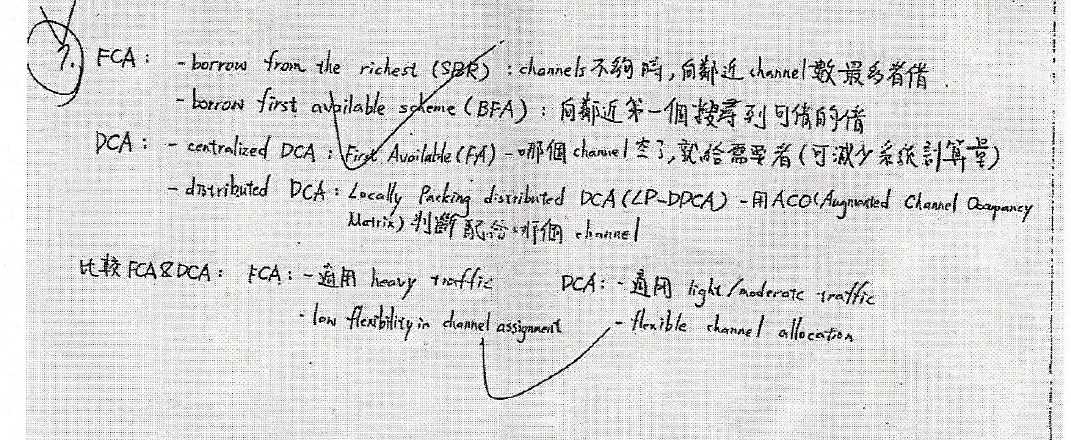 7. FCA: - borrow from the richest (SBR): channels 不夠時,向鄰近 channel 數最多者借.
- borrow first available scheme (BFA): 向鄰近第一個搜尋到可借的借
DCA: - centralized DCA: First Available (FA) - 哪個 channel 空了,就給需要者 (可減少系統計算量)
- distributed DCA: Locally Packing distributed DCA (LP-DDCA) - 用 ACO (Augmented Channel Occupancy
Matrix) 判斷配給哪個 channel
比較 FCA & DCA: FCA: - 適用 heavy traffic DCA: - 適用 light/moderate traffic
- low flexibility in channel assignment - flexible channel allocation